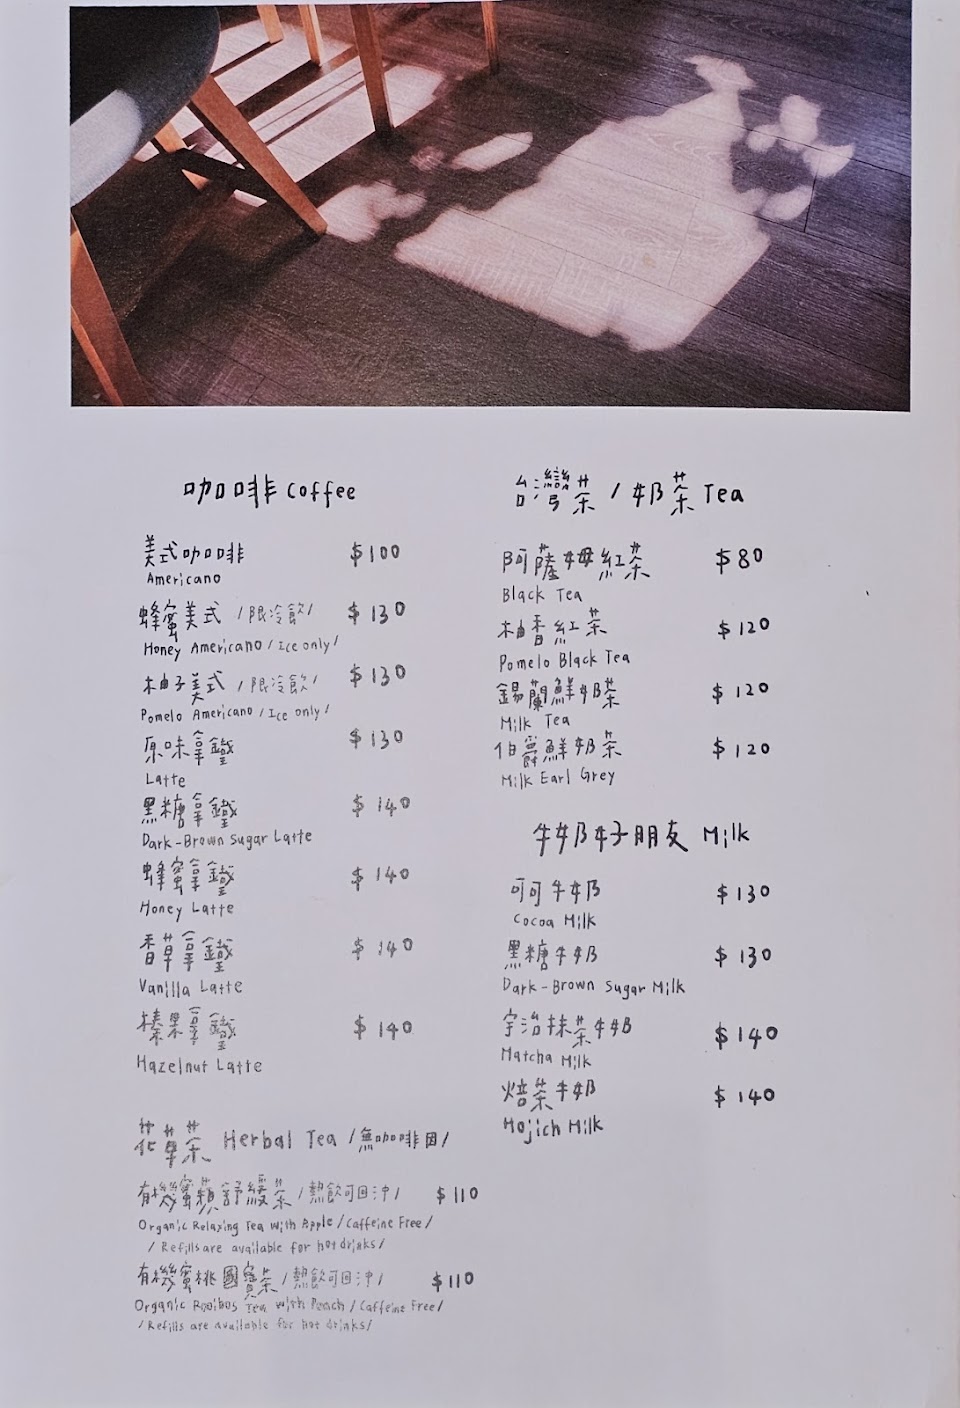 咖啡 Coffee
美式咖啡 $100
Americano
蜂蜜美式 /限冷飲/ $130
Honey Americano / Ice only/
柚子美式 /限冷飲/ $130
Pomelo Americano / Ice only/
原味拿鐵 $130
Latte
黑糖拿鐵 $140
Dark-Brown Sugar Latte
蜂蜜拿鐵 $140
Honey Latte
香草拿鐵 $140
Vanilla Latte
榛果拿鐵 $140
Hazelnut Latte
花草茶 Herbal Tea /無咖啡因/
有機蜜蘋舒緩茶 /熱飲可回沖/ $110
Organic Relaxing Tea with Apple / Caffeine Free/
/ Refills are available for hot drinks/
有機蜜桃國寶茶 /熱飲可回沖/ $110
Organic Rooibos Tea with Peach / Caffeine Free/
/ Refills are available for hot drinks/
台灣茶 / 奶茶 Tea
阿薩姆紅茶 $80
Black Tea
柚香紅茶 $120
Pomelo Black Tea
錫蘭鮮奶茶 $120
Milk Tea
伯爵鮮奶茶 $120
Milk Earl Grey
牛奶好朋友 Milk
可可牛奶 $130
Cocoa Milk
黑糖牛奶 $130
Dark-Brown Sugar Milk
宇治抹茶牛奶 $140
Matcha Milk
焙茶牛奶 $140
Hojich Milk